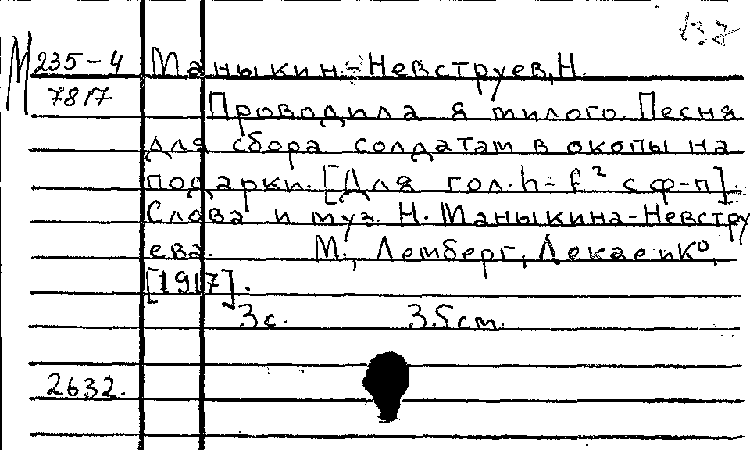 137
М 235-4 Маныкин-Невструев, Н.
7817 Проводила я милого. Песня
для сбора солдатам в окопы на
подарки. [Для гол. h-f² с ф-п].
Слова и муз. Н. Маныкина-Невстру
ева. М., Лемберг,
[1917].
3 с. 35 см.
2632.